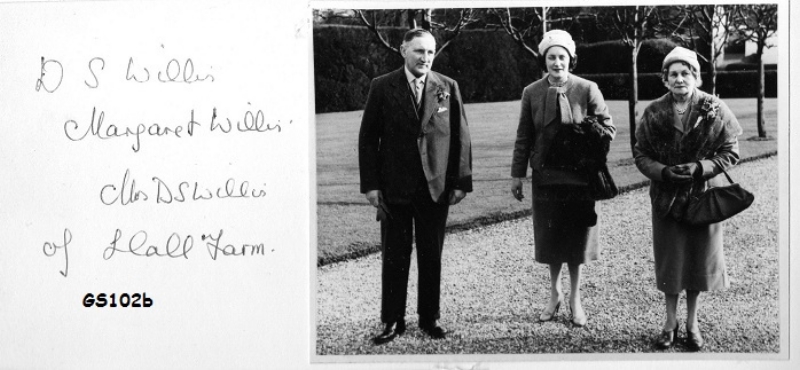 D S Willis
Margaret Willis
Mrs D S Willis
of Hall Farm.
GS102b